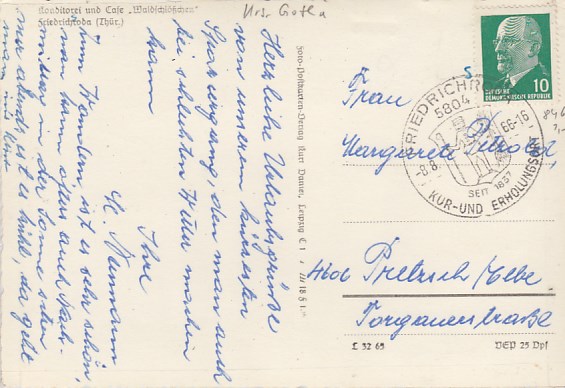 Konditorei und Cafe „Waldschlößchen"
Friedrichroda (Thür.)
Krs. Gotha
Herzliche Urlaubsgrüße
von unserem kürzesten
Spaziergang, den man auch
bei schlechtem Wetter machen
kann
Ihre
H. Neumann
Zum Wandern ist es sehr schön,
man kann auch
mittags in der Sonne
nur abends ist es kühl, da geht
man
Foto-Postkarten-Verlag Kurt Leipzig C 1
DEUTSCHE
DEMOKRATISCHE REPUBLIK
10
FRIEDRICHRODA
5804
-8.8.66-16
SEIT 1837
KUR- UND ERHOLUNGSORT
Frau
Margarete
4606 Pretzsch/Elbe
Torgauerstraße
L 32 65
VEP 25 Dpf